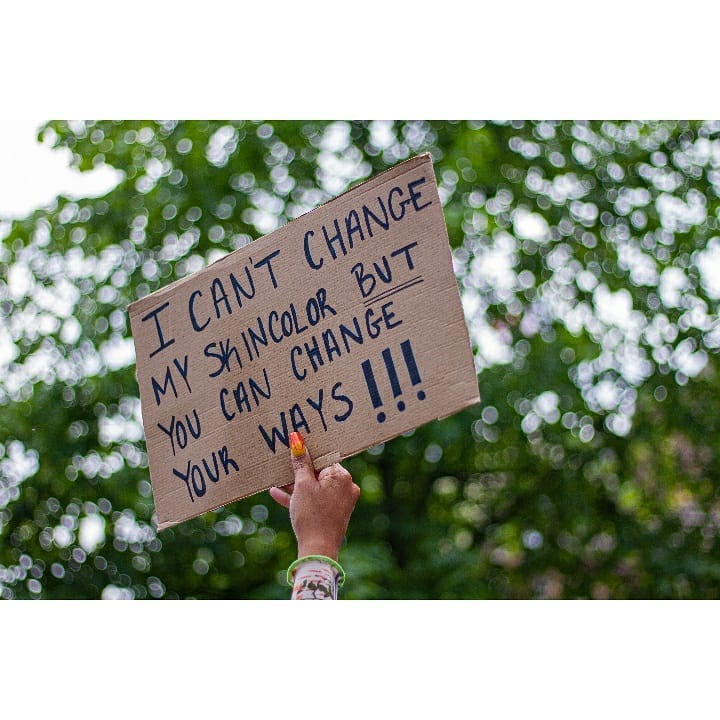 I CAN'T CHANGE
MY SKINCOLOR BUT
YOU CAN CHANGE
YOUR WAYS!!!